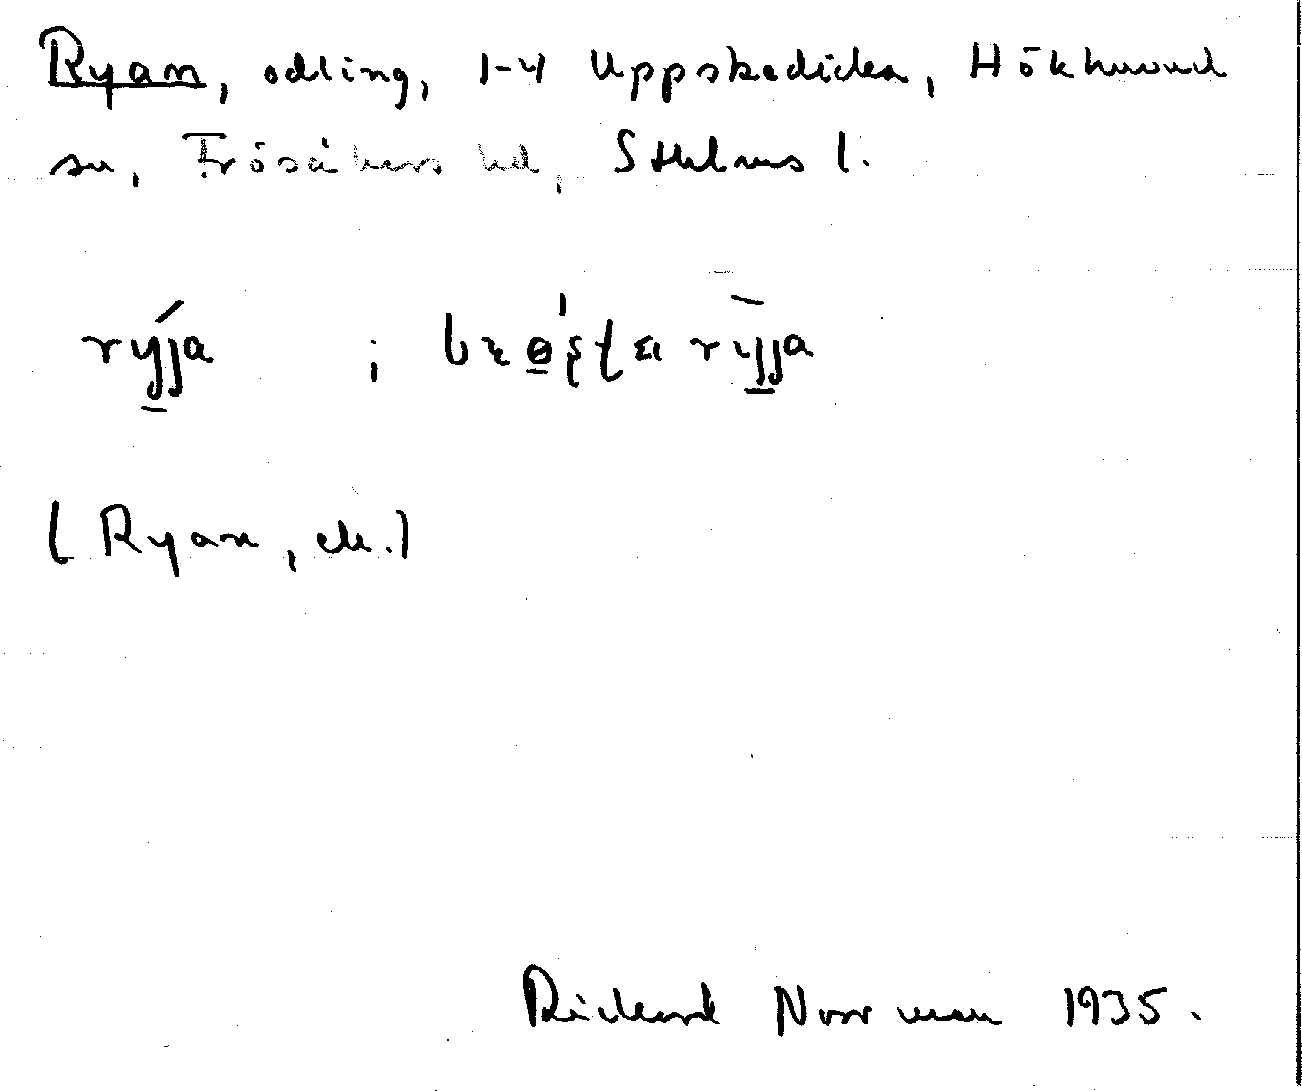 Ryan, odling, 1-4 Uppskedika, Hökhuvud
sn, Frösåkers hd, Sthlms l.
rýja ;
(Ryan, ek.)
Rickard Norrman 1935.